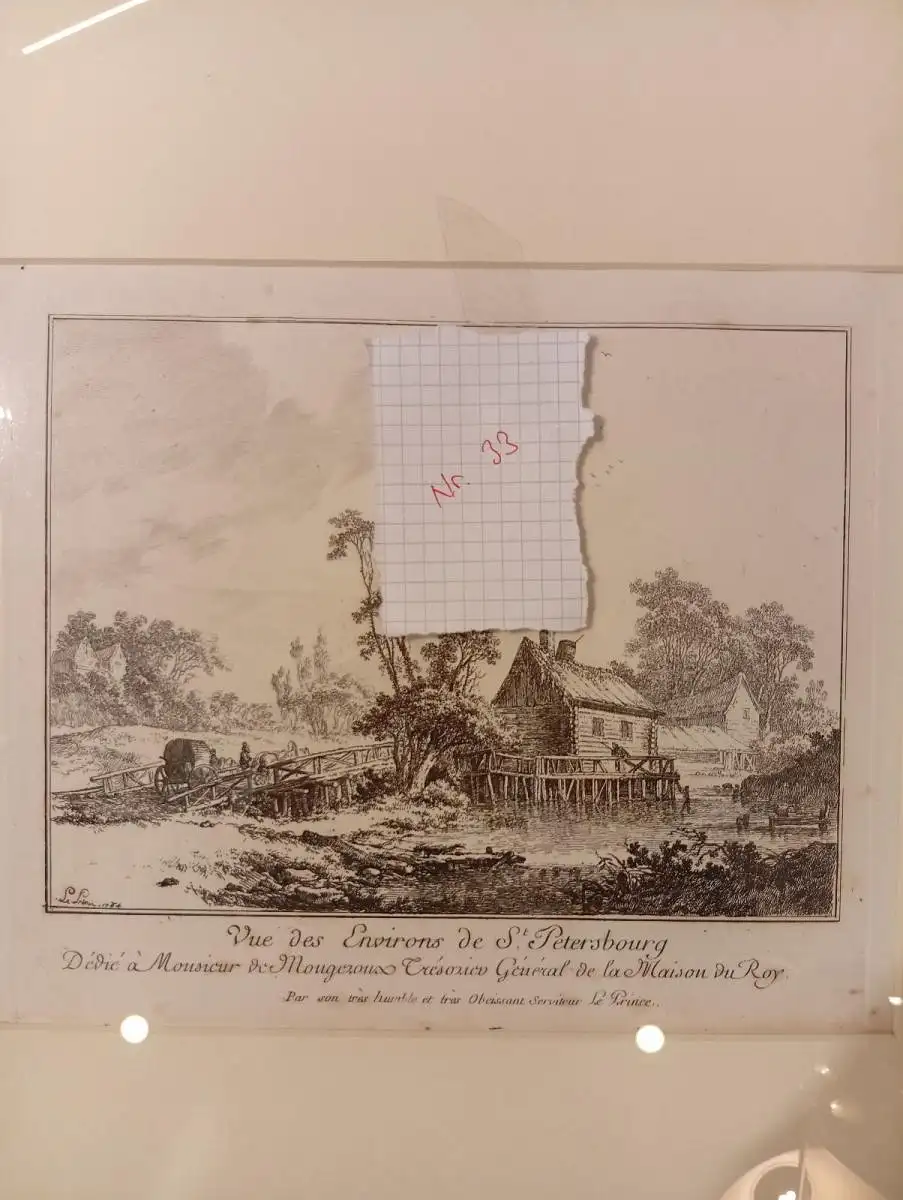 Nr. 33
Le Prince 1764
Vue des Environs de St. Pétersbourg
Dédié à Monsieur de Mougeroux Trésorier Général de la Maison du Roy.
Par son très humble et très Obeissant Serviteur Le Prince.